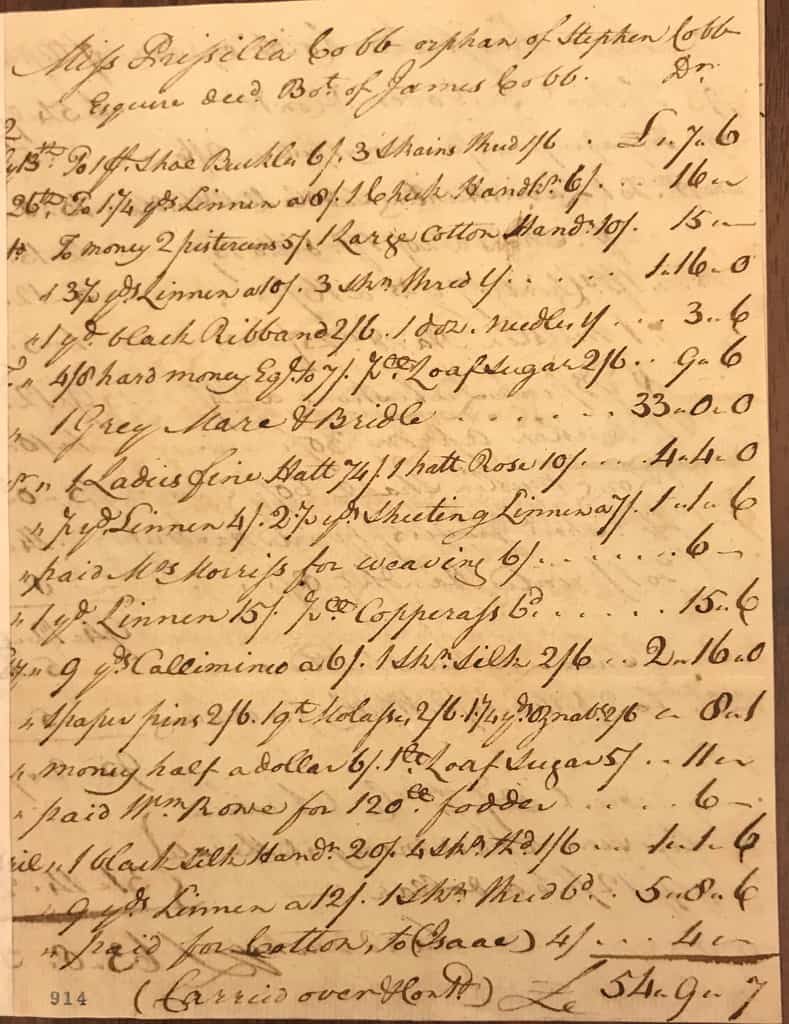 Miss Prissilla Cobb orphan of Stephen Cobb
Esquire decd. Bot. of James Cobb. Dr.
2
13th To 1 pr. Shoe Buckles 6/. 3 Skains thrid 1/6 . £ " 7 " 6
26th To 1 3/4 yds Linnen a 8/. 1 Check Handkr. 6/. . . 16 " "
To money 2 pistereens 5/. 1 Large Cotton Handr. 10/. 15 " —
" 3 1/2 yds Linnen a 10/. 3 Skn thrid 1/. . . . . . 1 " 16 " 0
" 1 yd. black Ribband 2/6. 1 doz. needles 1/ . . . 3 " 6
" 4/8 hard money Eql. to 7/. Loaf Sugar 2/6 . . 9 " 6
" 1 Grey Mare & Bridle . . . . . . . 33 " 0 " 0
" 1 Ladies fine Hatt 74/. 1 hatt Rose 10/. . . . 4 " 4 " 0
" 1/2 yd. Linnen 4/. 2 1/2 yds Sheeting Linnen a 7/. 1 " 1 " 6
" paid Mrs Morriss for weaving 6/ . . . . . . . 6 —
" 1 yd. Linnen 15/. Copperass 6d. . . . . . 15 " 6
" 9 yds Callimineo a 6/. 1 Skn. Silk 2/6 . . 2 " 16 " 0
" 1 paper pins 2/6. 1 qt. Molasses 2/6. 1 3/4 yd. Oznabs. 2/6 " 8 " 1
" money half a dollar 6/. 1 Loaf Sugar 5/ . . 11 " "
" paid Wm. Rowe for 120 fodder . . . . . 6 —
" 1 black silk Handr. 20/. 4 Skn. thd. 1/6 . . . 1 " 1 " 6
9 yds Linnen a 12/. 1 Skn thrid 6d. . . . 5 " 8 " 6
" paid for Cotton, to (Isaac) 4/ . . . . 4 " —
914 (Carried over & Contd.) £ 54 " 9 " 7